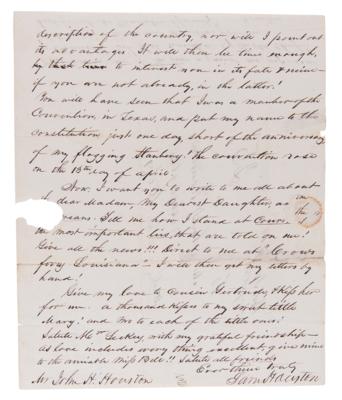 description of the country, nor will I point out
its advantages. It will then be time enough,
to interest you in its fate & mine
if you are not already, in the latter!
You will have seen that I was a member of the
Convention, in Texas, and put my name to the
constitution just one day, short of the anniversary
of my flogging Stanbery! The convention rose
on the 13th day of april.
Now, I want you to write to me all about
dear Madam, My Dearest Daughter, as in
Tell me how I stand at
the most important lies, that are told on me!
Give all the news!!! Direct to me at "Crows
ferry Louisiana" I will then get my letters by
hand!
Give my love to Cousin Gertrude & Kiss her
for me. a thousand kisses to my sweet little
Mary! and two to each of the little ones!
Salute with my grateful friendship
as love includes every thing excellent, give mine
to the amiable Miss Bell!! Salute all friends
Ever thine truly
Mr John H. Houston Sam Houston